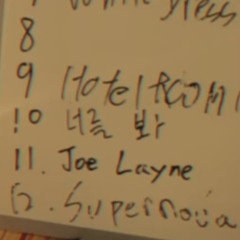 8
9 Hotel
10 너를 봐
11. Joe Layne
12. Supernova